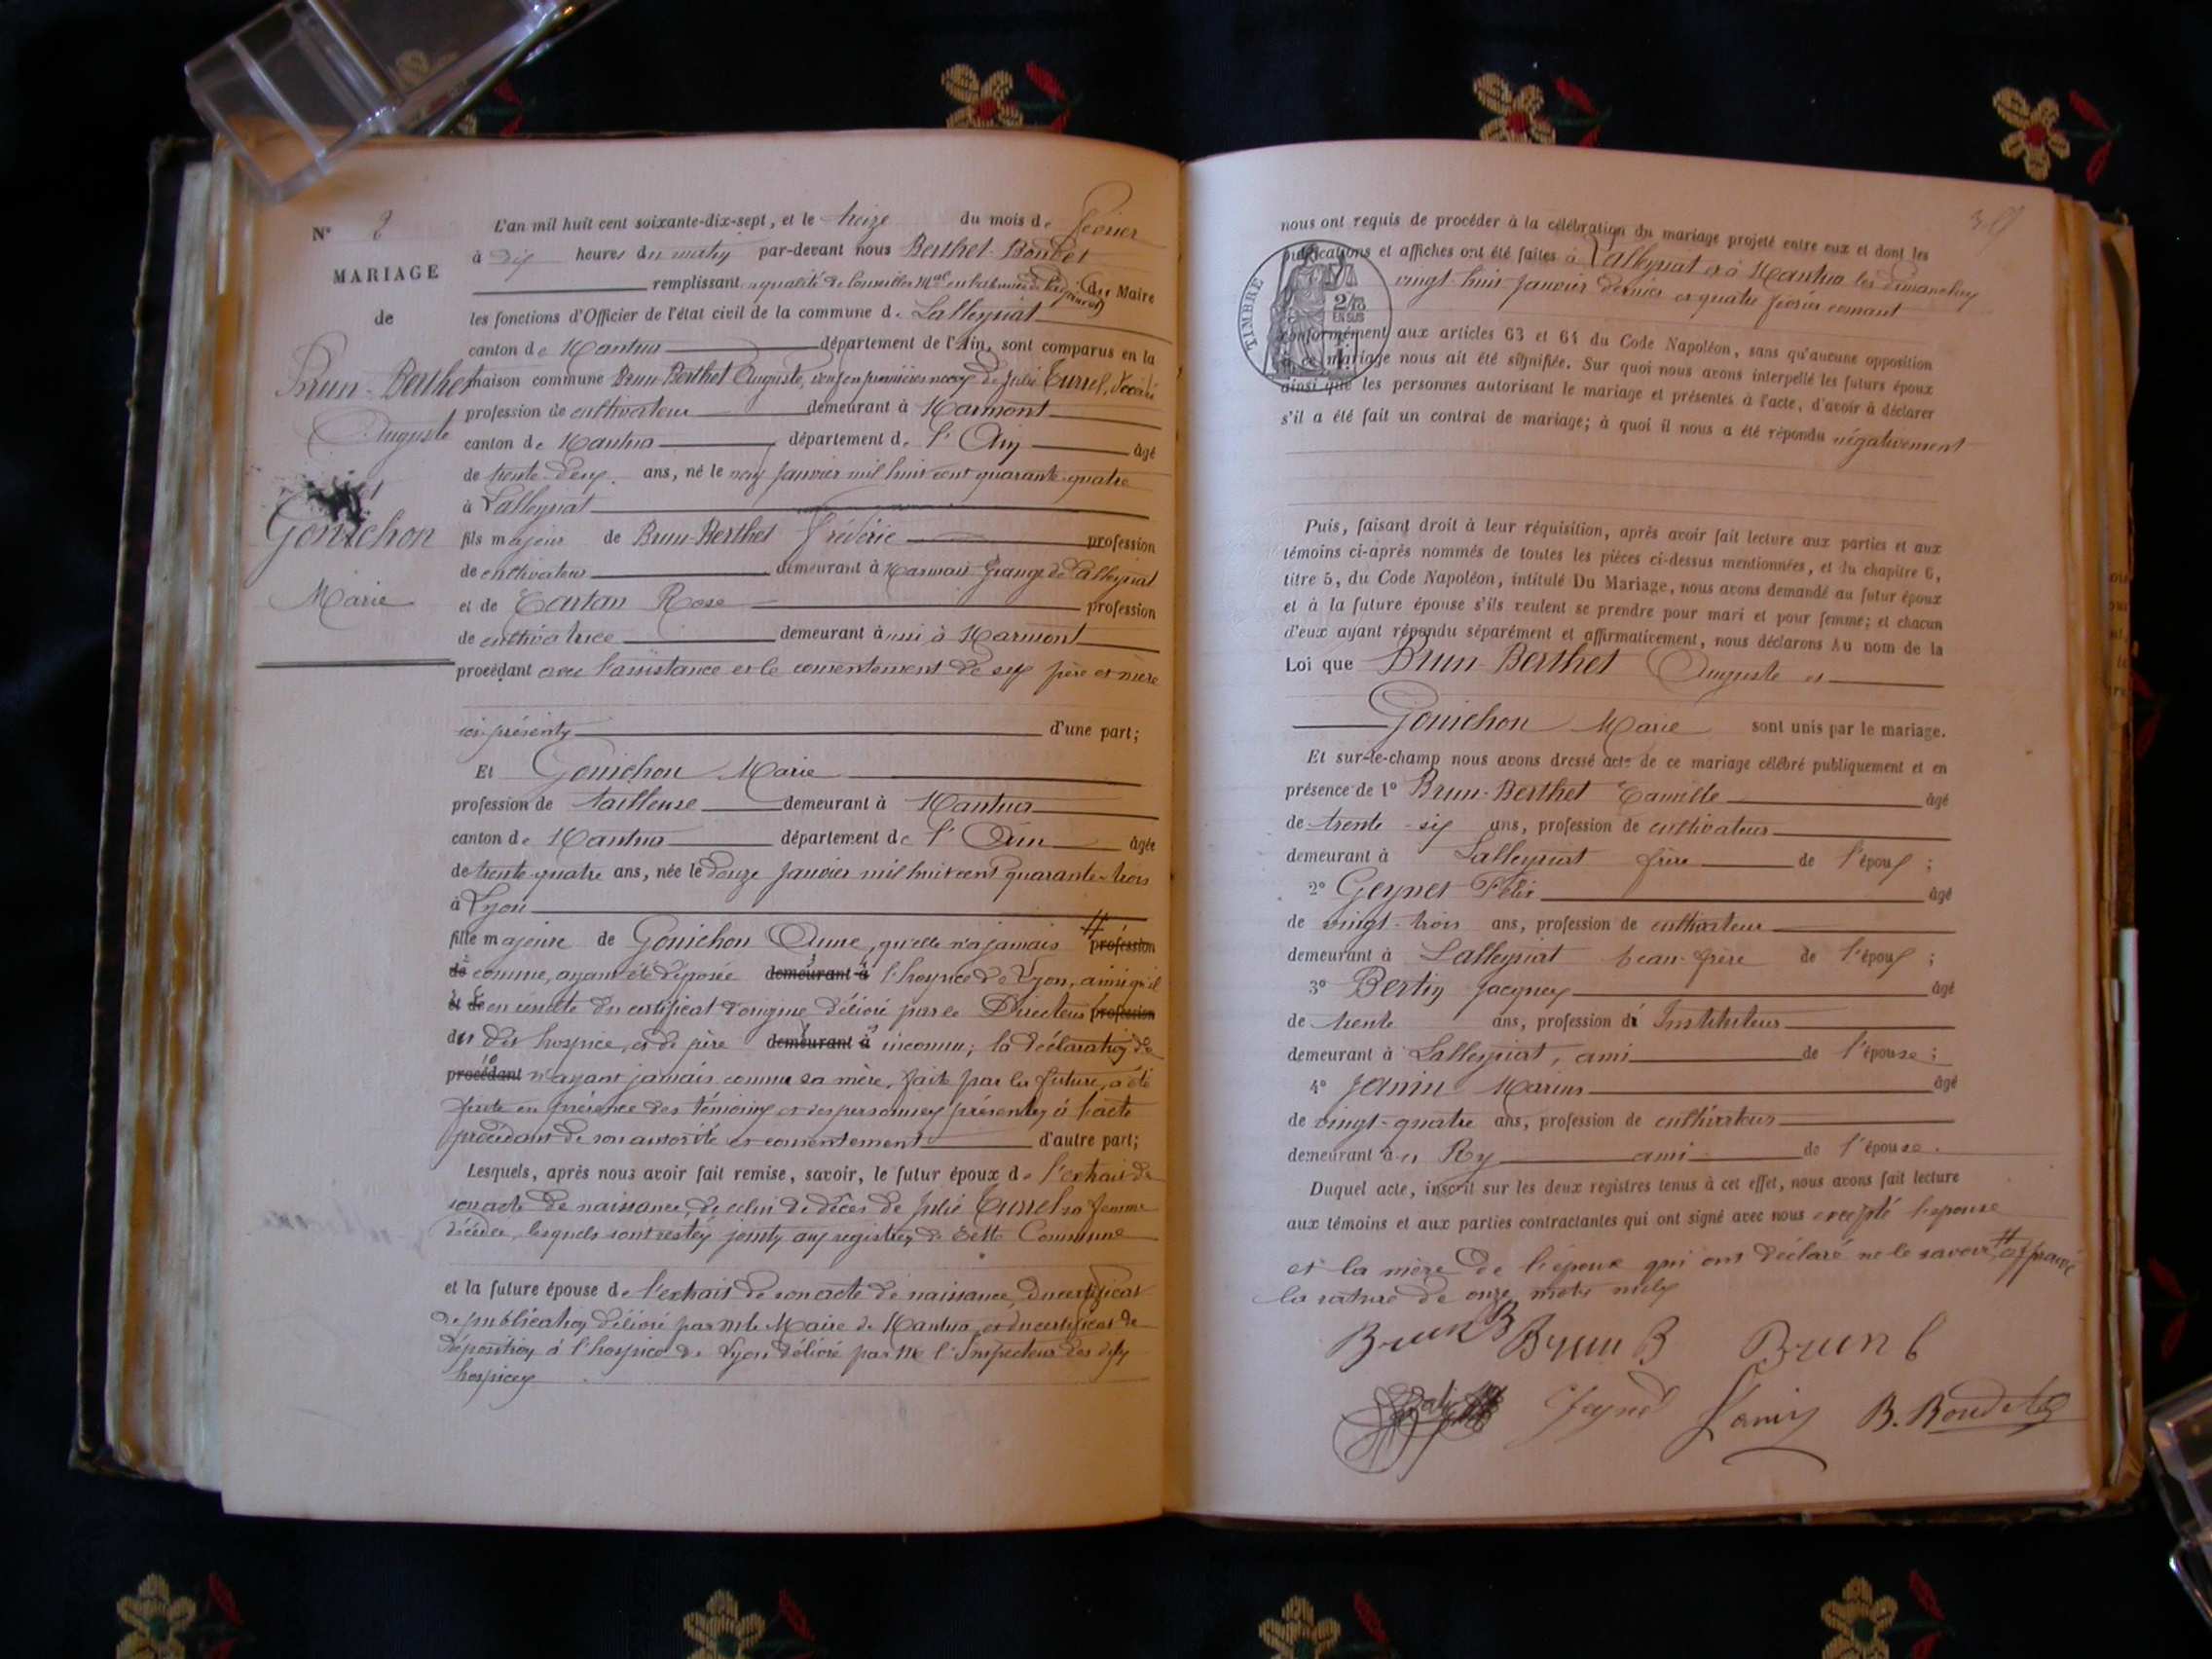 N° 2
MARIAGE
de
Brun-Berthet
Auguste
et
Gonichon
Marie
L'an mil huit cent soixante-dix-sept, et le treize du mois de février
à dix heures du matin par-devant nous Berthet-Bondet
remplissant en qualité de Conseiller Mal en l'absence du Maire
les fonctions d'Officier de l'état civil de la commune de Lalleyriat
canton de Nantua département de l'Ain, sont comparus en la
maison commune Brun-Berthet Auguste, veuf en premières noces de Julie Turrel, décédée
profession de cultivateur demeurant à Marmont
canton de Nantua département de l'Ain âgé
de trente-deux ans, né le neuf janvier mil huit cent quarante-quatre
à Lalleyriat
fils majeur de Brun-Berthet Frédéric profession
de cultivateur demeurant à Grange de Lalleyriat
et de Tartan Rose profession
de cultivatrice demeurant à aussi à Marmont
procédant avec l'assistance et le consentement de ses père et mère
ici présents d'une part;
Et Gonichon Marie
profession de tailleuse demeurant à Nantua
canton de Nantua département de l'Ain âgée
de trente-quatre ans, née le douze janvier mil huit cent quarante-trois
à Lyon
fille majeure de Gonichon Anne, qu'elle n'a jamais # profession
de connue, ayant été déposée demeurant à l'hospice de Lyon, ainsi qu'il
et de en résulte du certificat d'origine délivré par le Directeur profession
des dits hospice, et de père demeurant à inconnu; la déclaration de
procédant n'ayant jamais connu sa mère, faite par la future, a été
faite en présence des témoins et des personnes présentes à l'acte
procédant de son autorité et consentement d'autre part;
Lesquels, après nous avoir fait remise, savoir, le futur époux de l'extrait de
son acte de naissance, de celui de décès de Julie Turrel sa femme
décédée, lesquels sont restés joints aux registres de cette Commune
et la future épouse de l'extrait de son acte de naissance, du certificat
de publication délivré par Mr le Maire de Nantua, et du certificat de
déposition à l'hospice de Lyon délivré par Mr l'Inspecteur des dits
hospices
nous ont requis de procéder à la célébration du mariage projeté entre eux et dont les
publications et affiches ont été faites à Lalleyriat et à Nantua les dimanches
vingt-huit janvier dernier et quatre février courant
TIMBRE
2/10
EN SUS
conformément aux articles 63 et 64 du Code Napoléon, sans qu'aucune opposition
à ce mariage nous ait été signifiée. Sur quoi nous avons interpellé les futurs époux
ainsi que les personnes autorisant le mariage et présentes à l'acte, d'avoir à déclarer
s'il a été fait un contrat de mariage; à quoi il nous a été répondu négativement
Puis, faisant droit à leur réquisition, après avoir fait lecture aux parties et aux
témoins ci-après nommés de toutes les pièces ci-dessus mentionnées, et du chapitre 6,
titre 5, du Code Napoléon, intitulé Du Mariage, nous avons demandé au futur époux
et à la future épouse s'ils veulent se prendre pour mari et pour femme; et chacun
d'eux ayant répondu séparément et affirmativement, nous déclarons Au nom de la
Loi que Brun-Berthet Auguste et
Gonichon Marie sont unis par le mariage.
Et sur-le-champ nous avons dressé acte de ce mariage célébré publiquement et en
présence de 1° Brun-Berthet Camille âgé
de trente-six ans, profession de cultivateur
demeurant à Lalleyriat frère de l'époux ;
2° Geynet Félix âgé
de vingt-trois ans, profession de cultivateur
demeurant à Lalleyriat beau-frère de l'époux ;
3° Bertin Jacques âgé
de trente ans, profession d'Instituteur
demeurant à Lalleyriat, ami de l'épouse ;
4° Janin Marius âgé
de vingt-quatre ans, profession de cultivateur
demeurant à ami de l'épouse.
Duquel acte, inscrit sur les deux registres tenus à cet effet, nous avons fait lecture
aux témoins et aux parties contractantes qui ont signé avec nous excepté l'épouse
et la mère de l'époux qui ont déclaré ne le savoir # approuvé
la rature de onze mots nuls
Brun B Brun B Brun b
Janin B. Bondet